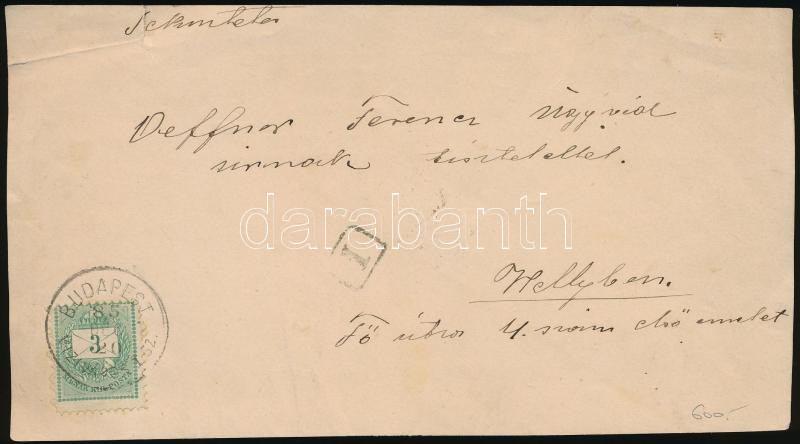 Tekintetes
Deffner Ferencz Ügyvéd
úrnak tisztelettel.
darabanth
I
Hellyben.
Fő útca 4. szám első emelet
BUDAPEST
85
3
600.-